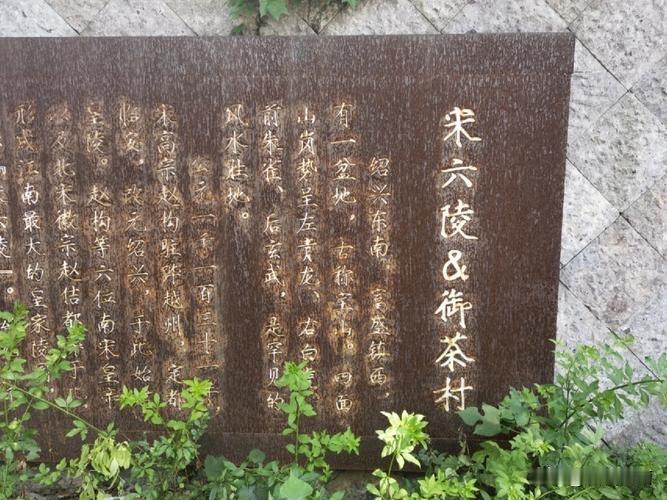 宋六陵&御茶村
绍兴东南，富盛镇西，
有一盆地，古称宝山。四面
山岗势呈左青龙、右白
前朱雀、后玄武，是罕见的
风水胜地。
公元一千一百三十一年，
宋高宗赵构驻跸越州，定都
临安，改元绍兴，于此始
皇陵。赵构等六位南宋皇帝
以及北宋徽宗赵佶都
形成江南最大的皇家陵